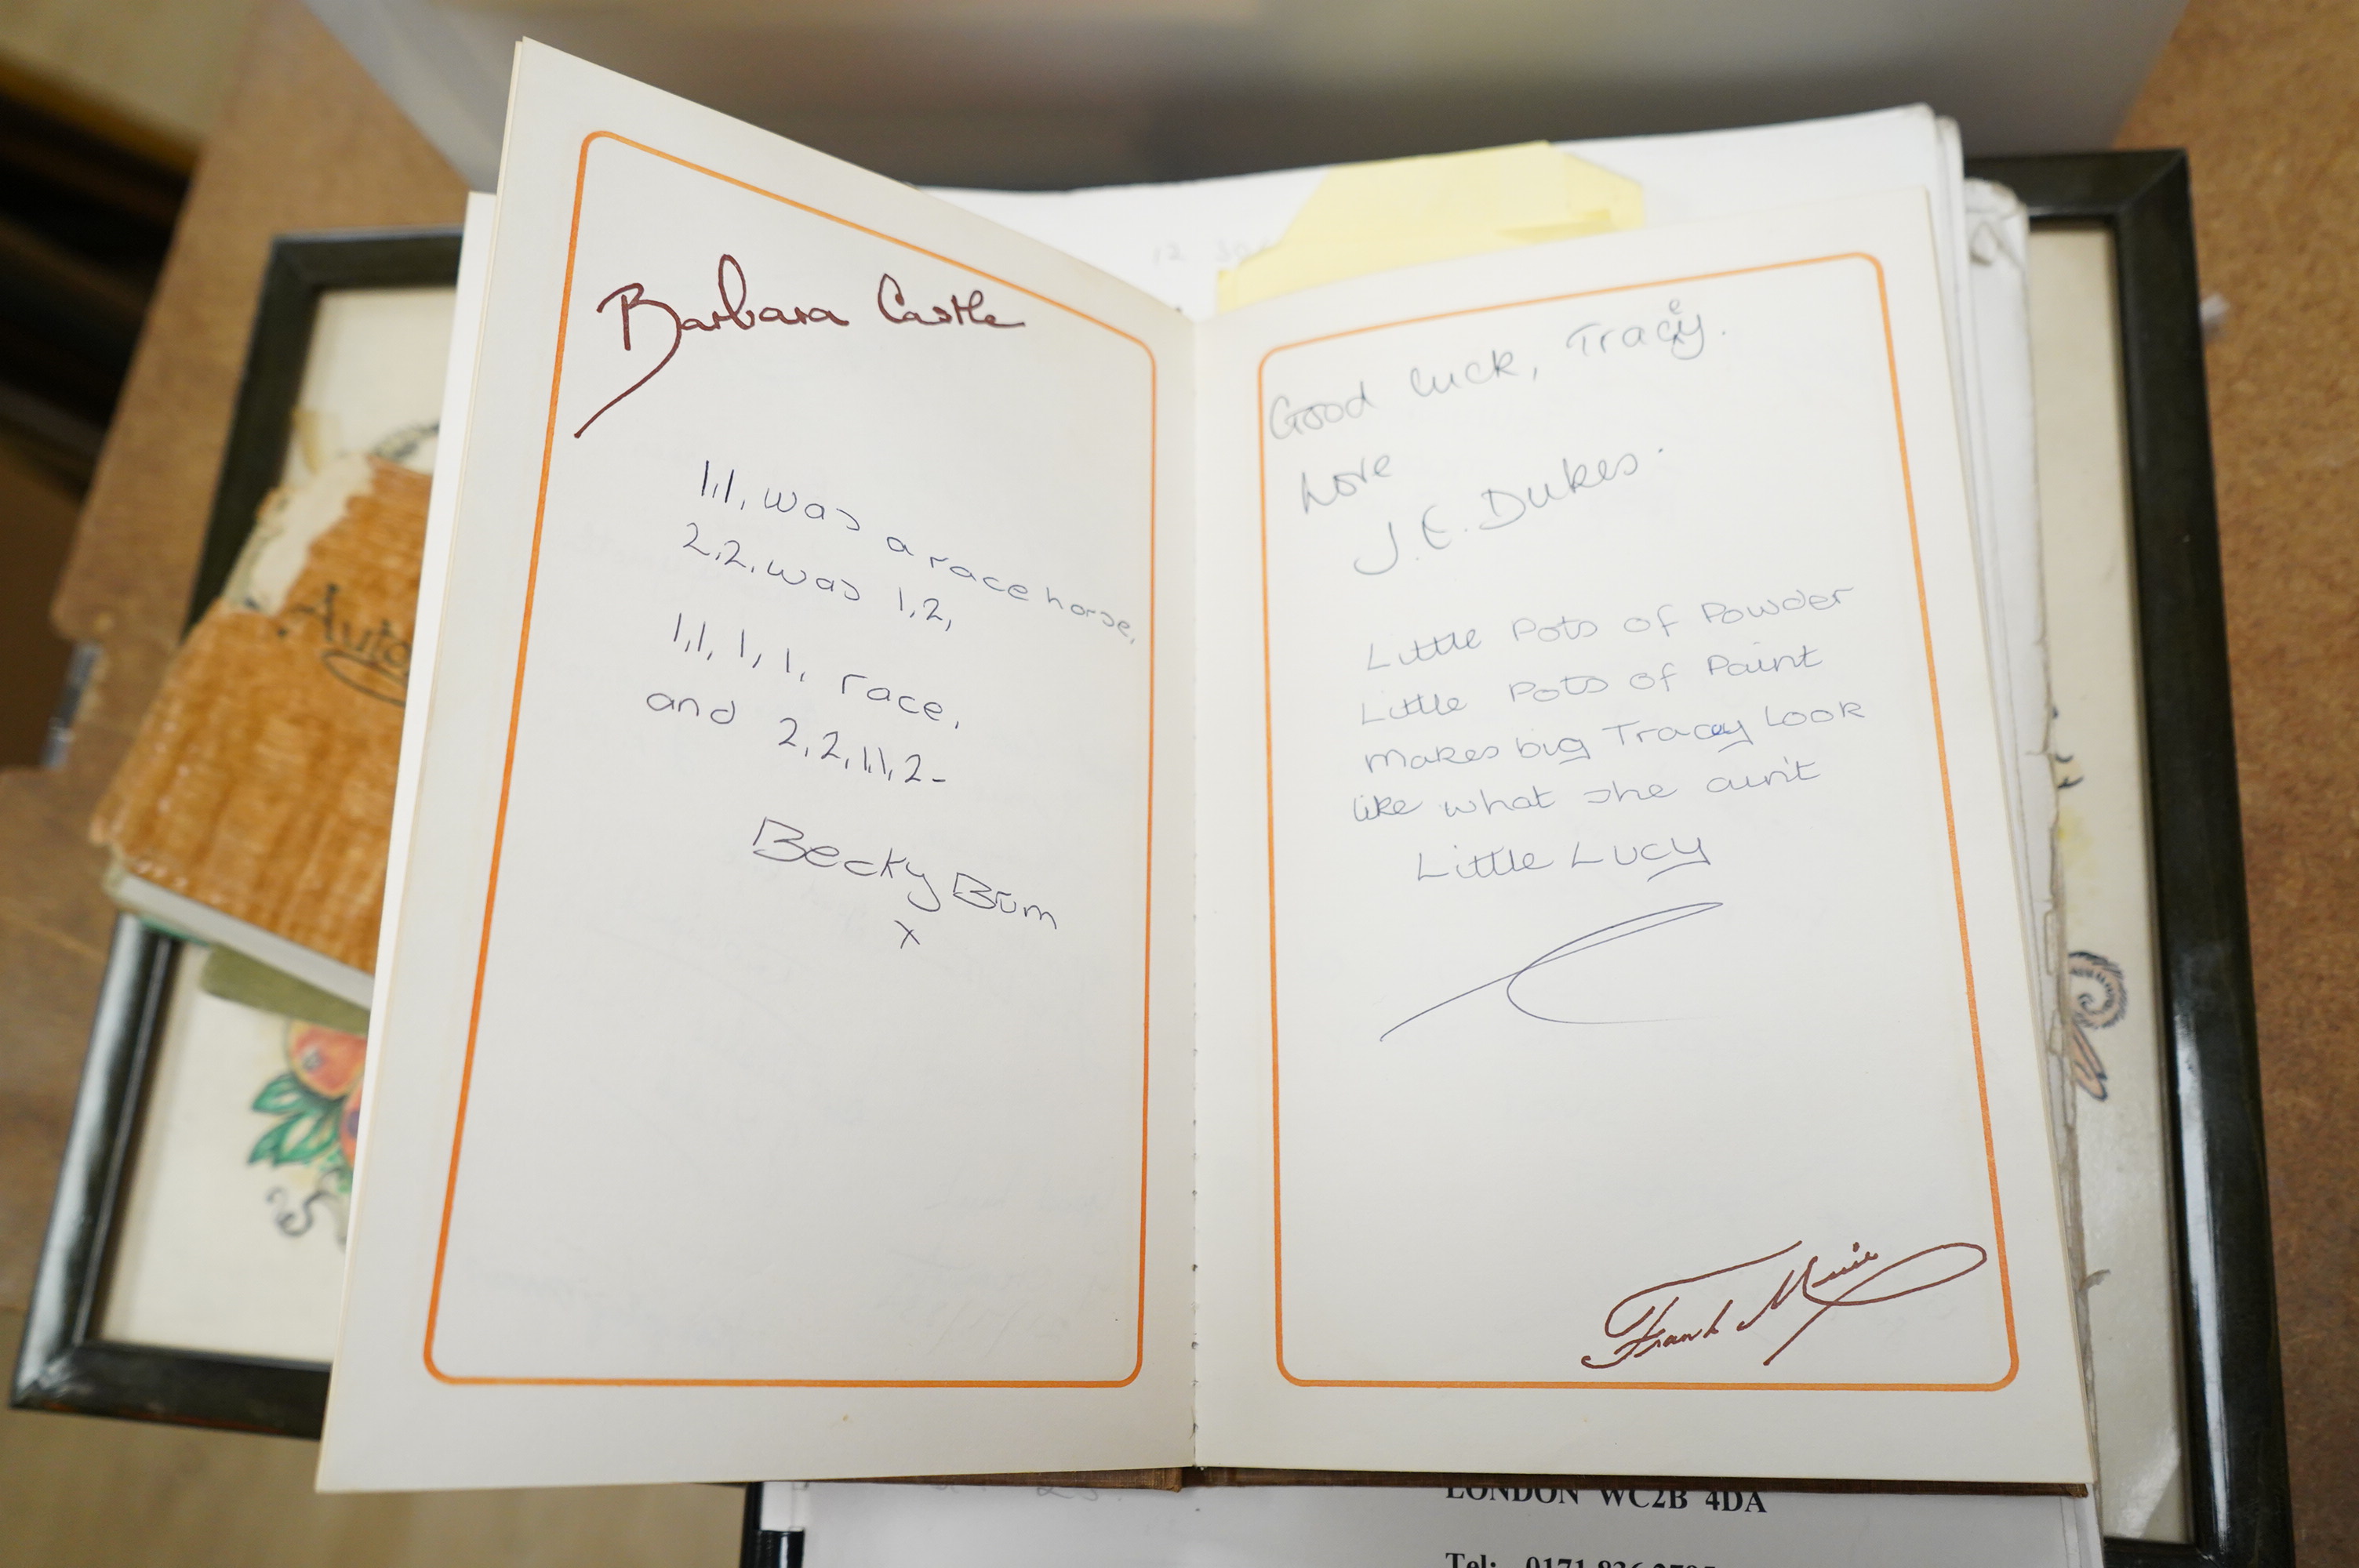 Barbara Castle
1,1, was a racehorse,
2,2, was 1,2,
1,1, 1, 1, race,
and 2,2,1,1,2-
Becky Bum
x
Good luck, Tracey.
Love
J.E. Dukes.
Little Pots of Powder
Little Pots of Paint
makes big Tracey Look
like what she ain't
Little Lucy
Frank Muir
Auto
12 30
LONDON WC2B 4DA
Tel: 0171 836